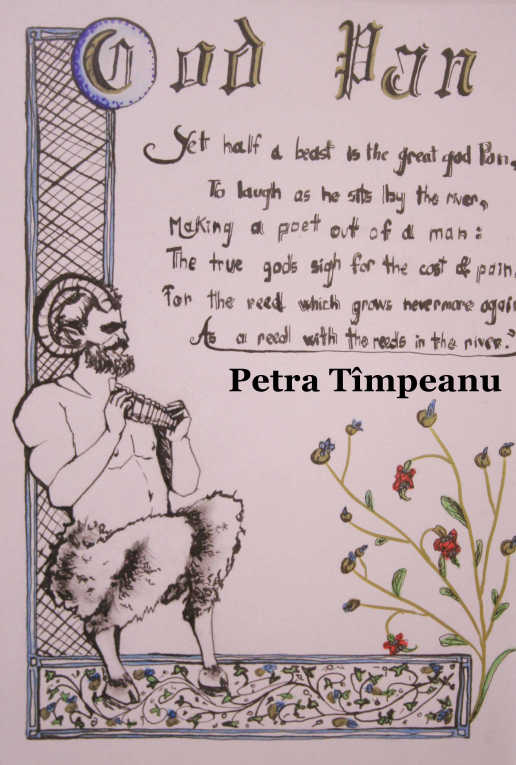 God Pan
Yet half a beast is the great god Pan,
To laugh as he sits by the river,
Making a poet out of a man:
The true gods sigh for the cost & pain,
For the reed which grows nevermore again
As a reed with the reeds in the river."
Petra Tîmpeanu